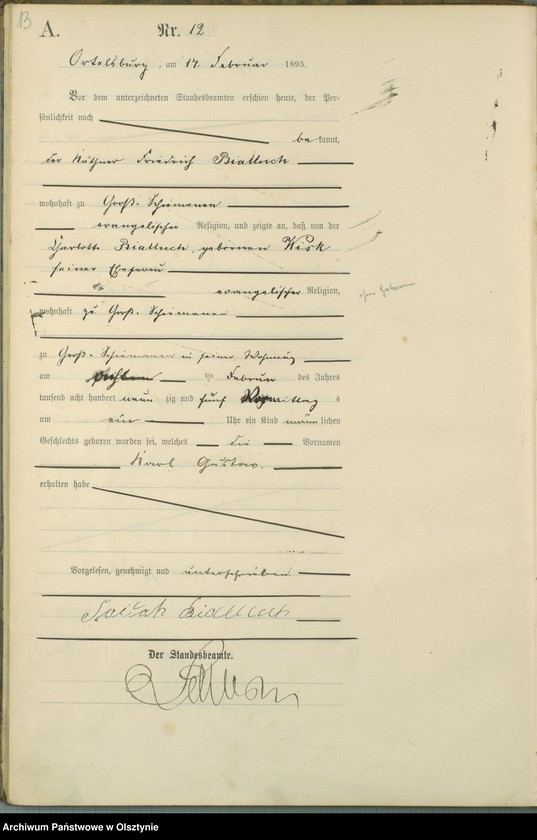 13
A. Nr. 12
Ortelsburg, am 14. Februar 1895.
Vor dem unterzeichneten Standesbeamten erschien heute, der Per-
sönlichkeit nach
be kannt,
der Käthner Friedrich Biattuch
wohnhaft zu Groß-Schiemanen
evangelischer Religion, und zeigte an, daß von der
Charlotte Biattuch, geborenen Wisk
seiner Ehefrau
evangelischer Religion,
wohnhaft zu Groß-Schiemanen
zu Groß-Schiemanen in seiner Wohnung
am ten Februar des Jahres
tausend acht hundert neun zig und fünf Vormittag s
um ein Uhr ein Kind männlichen
Geschlechts geboren worden sei, welches die Vornamen
Karl Gustav
erhalten habe
Vorgelesen, genehmigt und unterschrieben.
Der Standesbeamte.
Archiwum Państwowe w Olsztynie